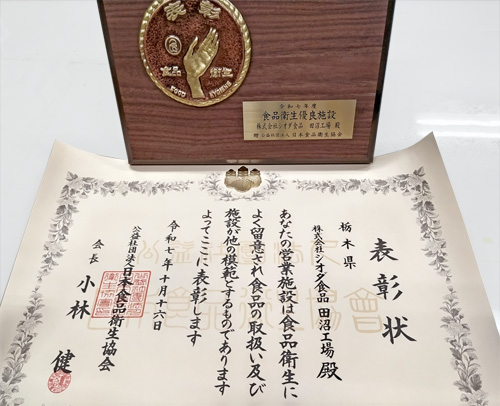 表彰
食品 衛生
FOOD HYGIENE
令和七年度
食品衛生優良施設
株式会社シオダ食品 田沼工場 殿
贈 公益社団法人 日本食品衛生協会
表彰状
栃木県
株式会社シオダ食品 田沼工場 殿
あなたの営業施設は食品衛生に
よく留意され食品の取扱い及び
施設が他の模範とするものであります
よってここに表彰します
令和七年十月十六日
公益社団法人日本食品衛生協会
会長 小林 健